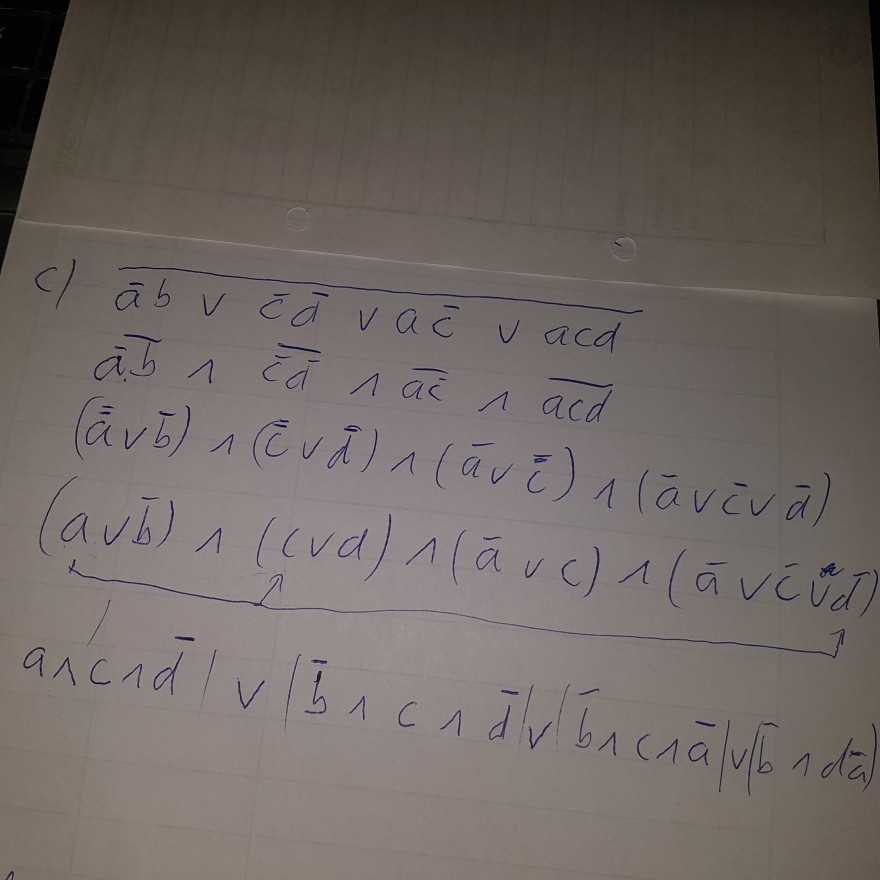 c) \overline{āb ∨ c̄d̄ ∨ ac̄ ∨ acd}
\overline{āb} ∧ \overline{c̄d̄} ∧ \overline{ac̄} ∧ \overline{acd}
(a̿ ∨ b̄) ∧ (c̿ ∨ d̿) ∧ (ā ∨ c̿) ∧ (ā ∨ c̄ ∨ d̄)
(a ∨ b̄) ∧ (c ∨ d) ∧ (ā ∨ c) ∧ (ā ∨ c̄ ∨ d̄)
a ∧ c ∧ d̄ | ∨ | b̄ ∧ c ∧ d̄ | ∨ | b̄ ∧ c ∧ ā | ∨ | b̄ ∧ dā)